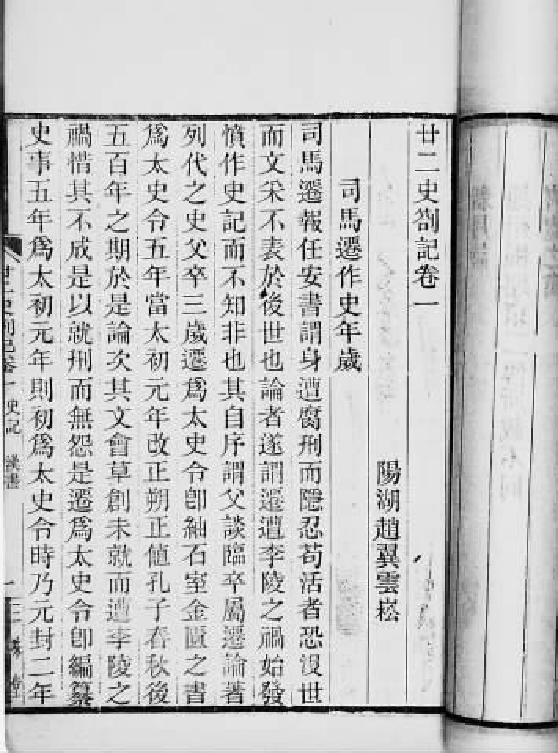 廿二史劄記卷一
陽湖趙翼雲崧
司馬遷作史年歲
司馬遷報任安書謂身遭腐刑而隱忍苟活者恐沒世
而文采不表於後世也論者遂謂遷遭李陵之禍始發
憤作史記而不知非也其自序謂父談臨卒屬遷論著
列代之史父卒三歲遷爲太史令卽紬石室金匱之書
爲太史令五年當太初元年改正朔正値孔子春秋後
五百年之期於是論次其文會草創未就而遭李陵之
禍惜其不成是以就刑而無怨是遷爲太史令卽編纂
史事五年爲太初元年則初爲太史令時乃元封二年
廿二史劄記卷一 史記 漢書
一